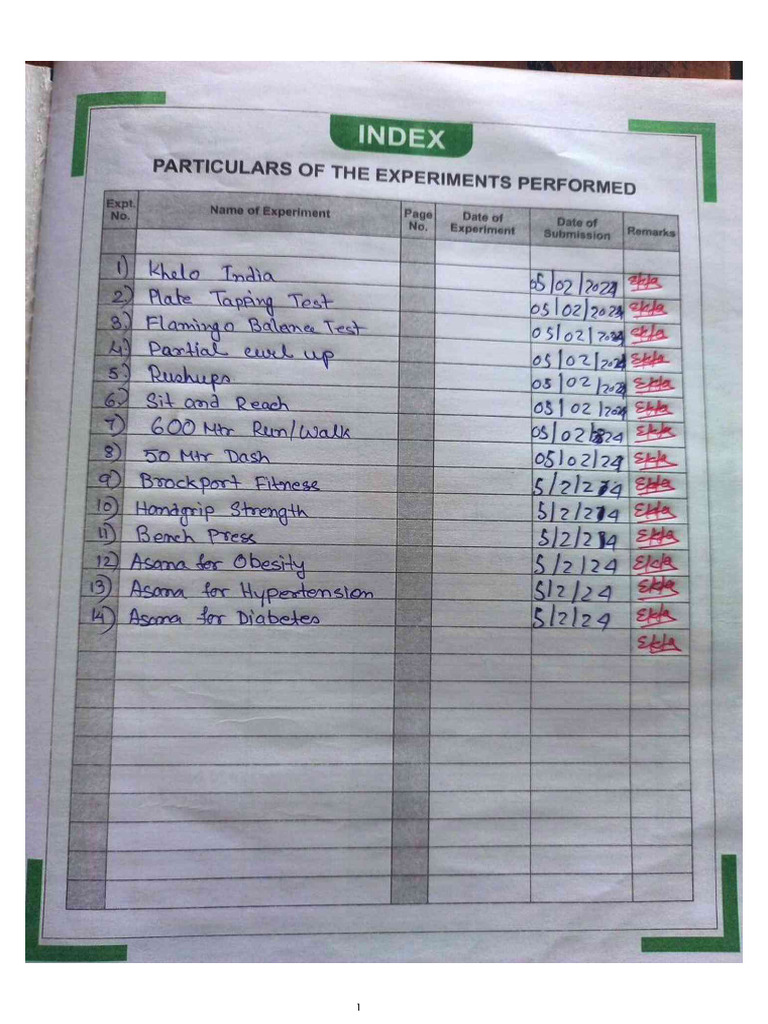 INDEX
PARTICULARS OF THE EXPERIMENTS PERFORMED
Expt. No. Name of Experiment Page No. Date of Experiment Date of Submission Remarks
1) Khelo India 05/02/2024
2) Plate Tapping Test 05/02/2024
3) Flamingo Balance Test 05/02/2024
4) Partial curl up 05/02/2024
5) Pushups 05/02/2024
6) Sit and Reach 05/02/2024
7) 600 Mtr Run/Walk 05/02/24
8) 50 Mtr Dash 05/02/24
9) Brockport Fitness 5/2/24
10) Handgrip Strength 5/2/24
11) Bench Press 5/2/24
12) Asana for Obesity 5/2/24
13) Asana for Hypertension 5/2/24
14) Asana for Diabetes 5/2/24
1